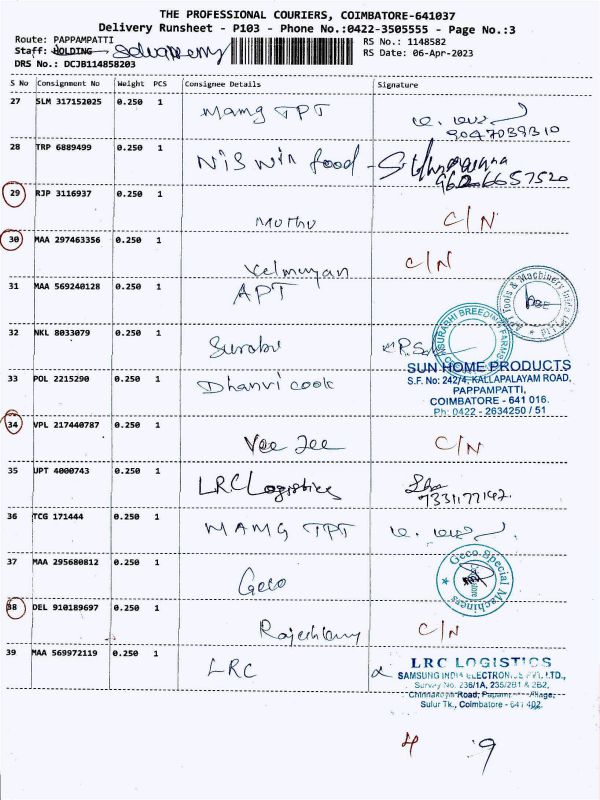 THE PROFESSIONAL COURIERS, COIMBATORE-641037
Delivery Runsheet - P103 - Phone No.:0422-3505555 - Page No.:3
Route: PAPPAMPATTI
RS No.: 1148582
Staff: HOLDING
RS Date: 06-Apr-2023
DRS No.: DCJB114858203
S No Consignment No Weight PCS Consignee Details Signature
27 SLM 317152025 0.250 1 MAMG TPT
9047039310
28 TRP 6889499 0.250 1 Niswin food
29 RJP 3116937 0.250 1 Muthu C/N
30 MAA 297463356 0.250 1 Velmuyan C/N
31 MAA 569240128 0.250 1 APT
Tools & Machinery
32 NKL 8033079 0.250 1 Surabi
SURABHI BREEDING FARMS
33 POL 2215290 0.250 1 Dhanvi cook
SUN HOME PRODUCTS
S.F. No: 242/4, KALLAPALAYAM ROAD,
PAPPAMPATTI,
COIMBATORE - 641 016.
Ph: 0422 - 2634250 / 51
34 VPL 217440787 0.250 1 Vee Jee C/N
35 UPT 4000743 0.250 1 LRC Logistics
36 TCG 171444 0.250 1 MAMG TPT
37 MAA 295680812 0.250 1 Geco
Geco Special Machines
38 DEL 910189697 0.250 1 C/N
39 MAA 569972119 0.250 1 LRC
LRC LOGISTICS
SAMSUNG INDIA ELECTRONICS PVT. LTD.,
Survey No. 236/1A, 235/2B1 & 2B2,
Road, Village,
Sulur Tk., Coimbatore - 641 402.
4 9